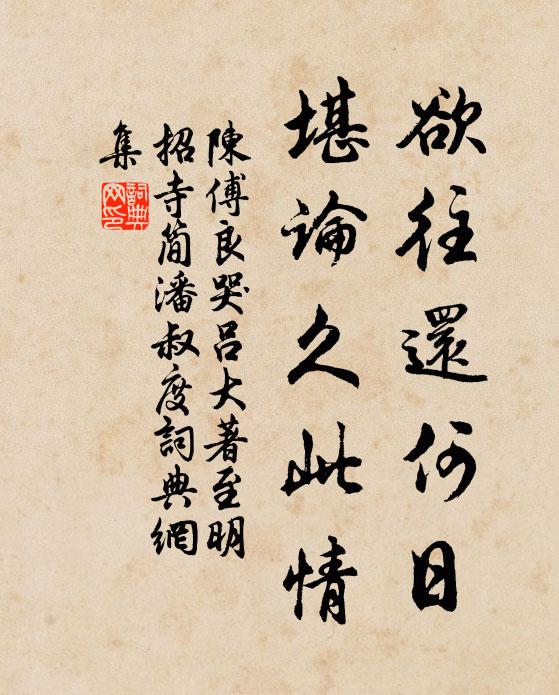 欲往還何日
堪論久此情
陳傅良哭呂大著至明
招寺簡潘叔度詞典網
集
詞典
网印